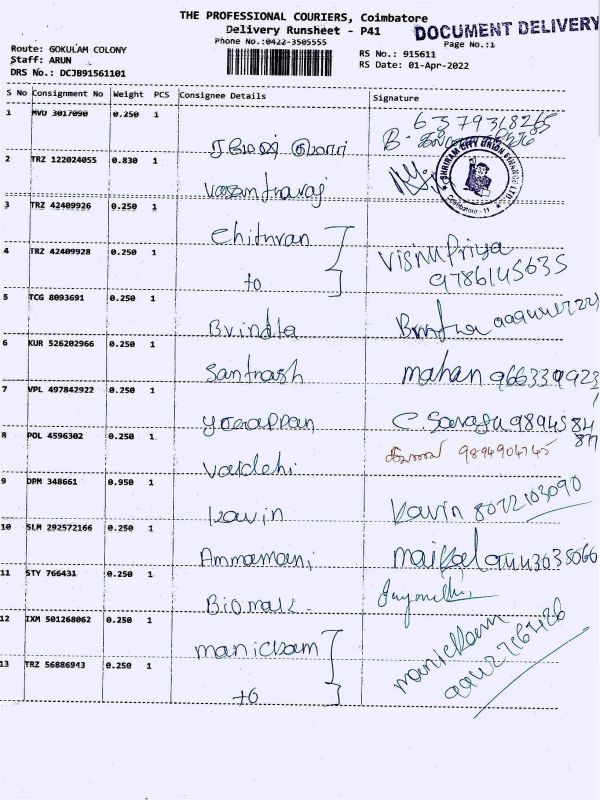 THE PROFESSIONAL COURIERS, Coimbatore
Delivery Runsheet - P41
DOCUMENT DELIVERY
Phone No.:0422-3505555
Page No.:1
Route: GOKULAM COLONY
Staff: ARUN
DRS No.: DCJB91561101
RS No.: 915611
RS Date: 01-Apr-2022
S No Consignment No Weight PCS Consignee Details Signature
1 MVD 3017090 0.250 1
6379318265
2 TRZ 122024055 0.830 1
Vasanthavaj
SHRIRAM CITY UNION FINANCE LTD
Coimbatore - 11
3 TRZ 42409926 0.250 1
Chithran
4 TRZ 42409928 0.250 1
to
Vishu Priya
9786145635
5 TCG 8093691 0.250 1
Brindta
6 KUR 526202966 0.250 1
Santhosh
mahan 9663339923
7 VPL 497842922 0.250 1
8 POL 4596302 0.250 1
Vaidehi
9894904745
9 DPM 348661 0.950 1
kavin
kavin 8072103090
10 SLM 292572166 0.250 1
Ammamani
11 STY 766431 0.250 1
12 IXM 501268062 0.250 1
manickam
manickam
13 TRZ 56886943 0.250 1
to